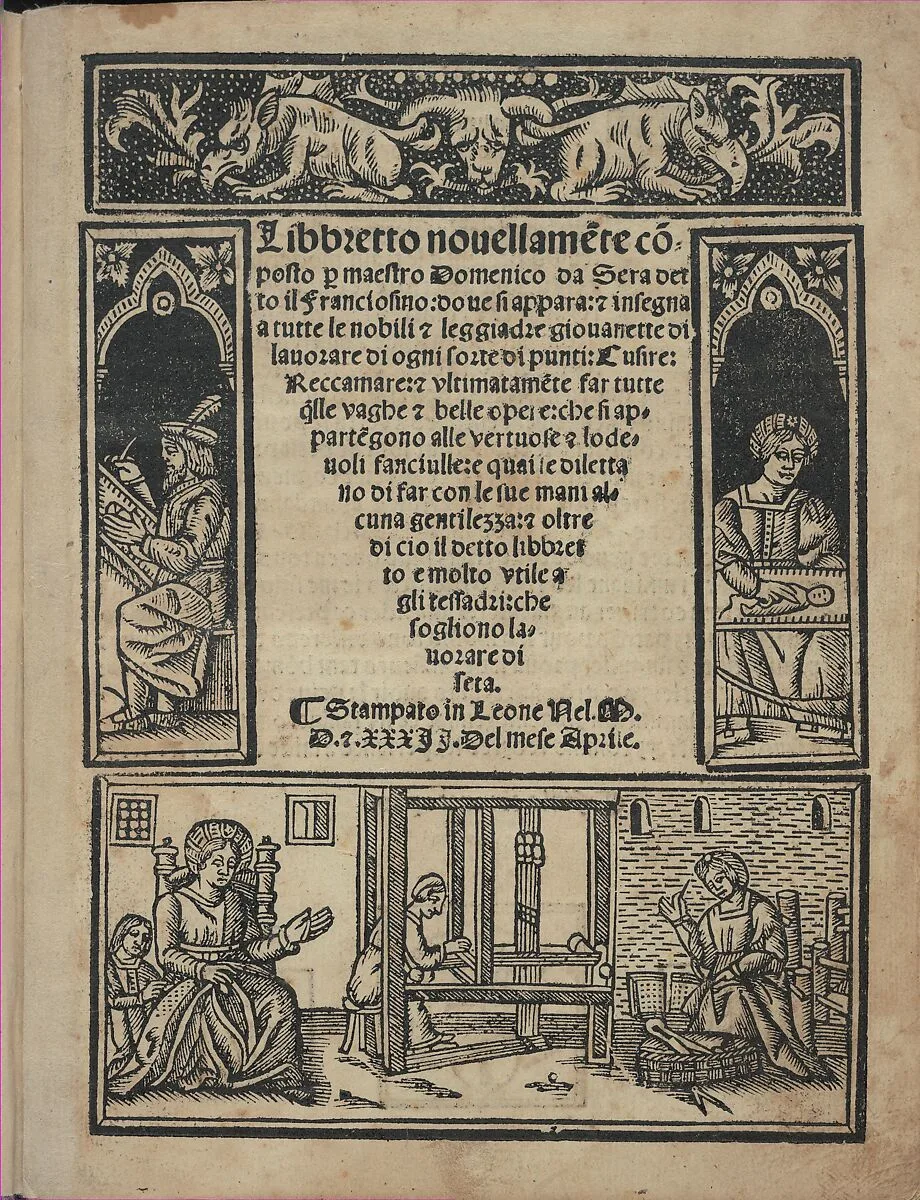 Libbretto nouellamẽte cõ-
posto ꝑ maestro Domenico da Sera det
to il Franciosino: doue si appara: ⁊ insegna
a tutte le nobili ⁊ leggiadre giouanette di
lauorare di ogni sorte di punti: Cusire:
Reccamare: ⁊ vltimatamẽte far tutte
q̃lle vaghe ⁊ belle opere: che si ap-
partẽgono alle vertuose ⁊ lode-
uoli fanciulle: e quai se diletta
no di far con le sue mani al-
cuna gentilezza: ⁊ oltre
di cio il detto libbret
to e molto vtile a
gli tessadri: che
sogliono la-
uorare di
seta.
¶ Stampato in Leone Nel. M.
D. ⁊. XXXII. Del mese Aprile.